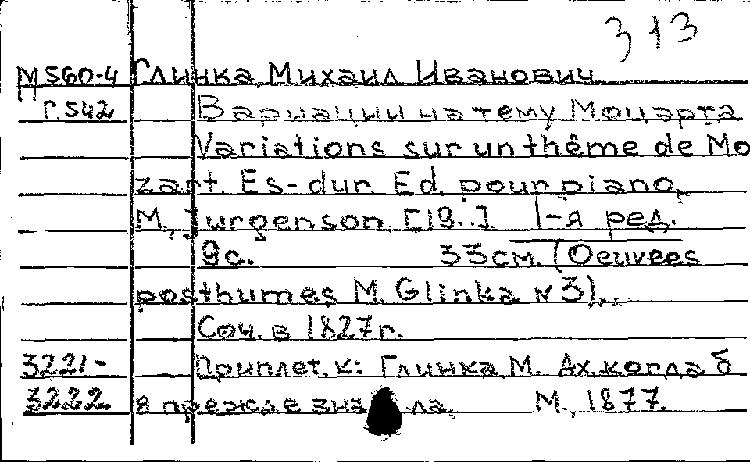 313
М560-4 Глинка, Михаил Иванович.
Г.542 Вариации на тему Моцарта
Variations sur un thême de Mo
zart. Es-dur. Ed. pour piano.
М., Jurgenson. [19..] 1-я ред.
9с. 33см. (Oeuvres
posthumes M. Glinka N 3)...
Соч. в 1827г.
3221- Приплет. к: Глинка М. Ах, когда б
3222. я прежде знала. М., 1877.